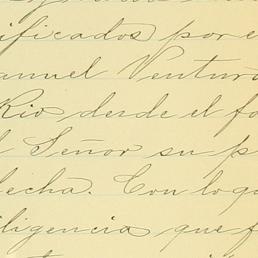 ificados por e
anuel Ventura
Rio desde el fo
l Señor su p
fecha. Con lo qu
iligencia que f